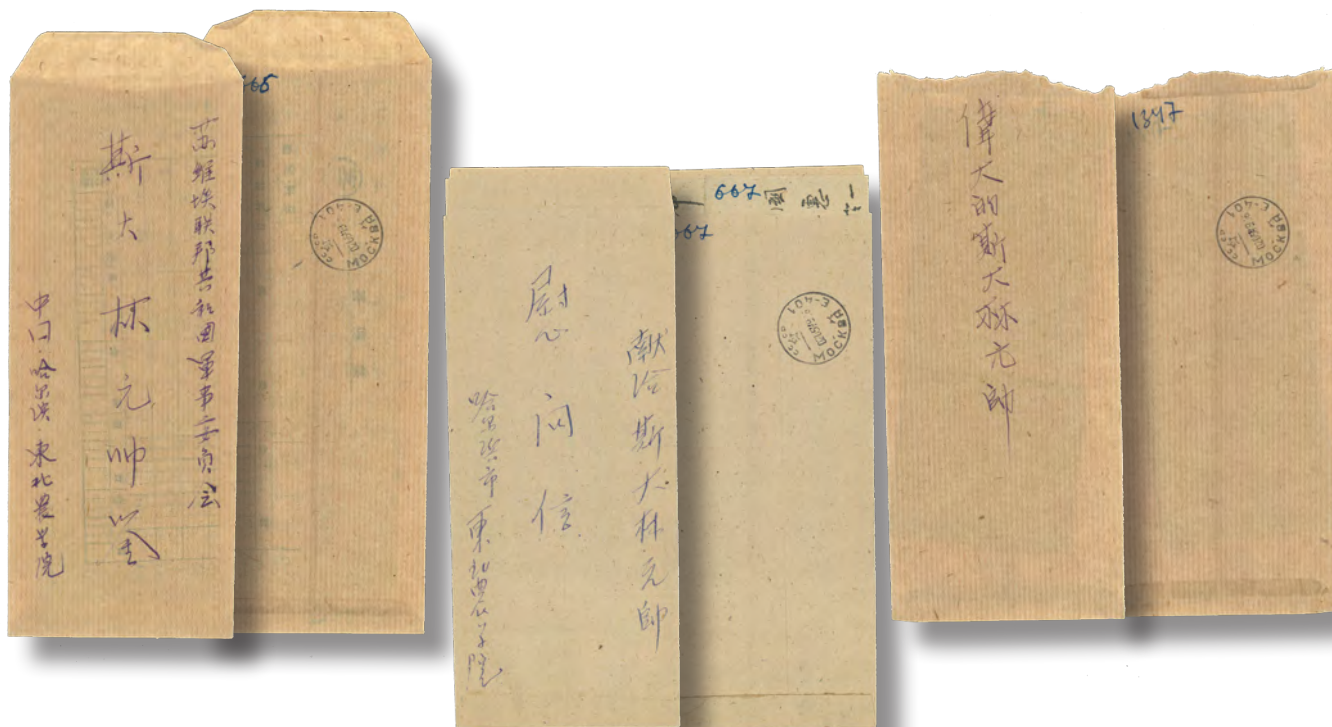 苏維埃联邦共和国軍事委員会
斯大林元帅鉴
中国·哈尔滨·東北農学院
665
МОСКВА
Е-401
献给斯大林元帥
慰问信
哈尔滨市東北農学院
667
667
МОСКВА
Е-401
偉大的斯大林元帥
1347
МОСКВА
Е-401